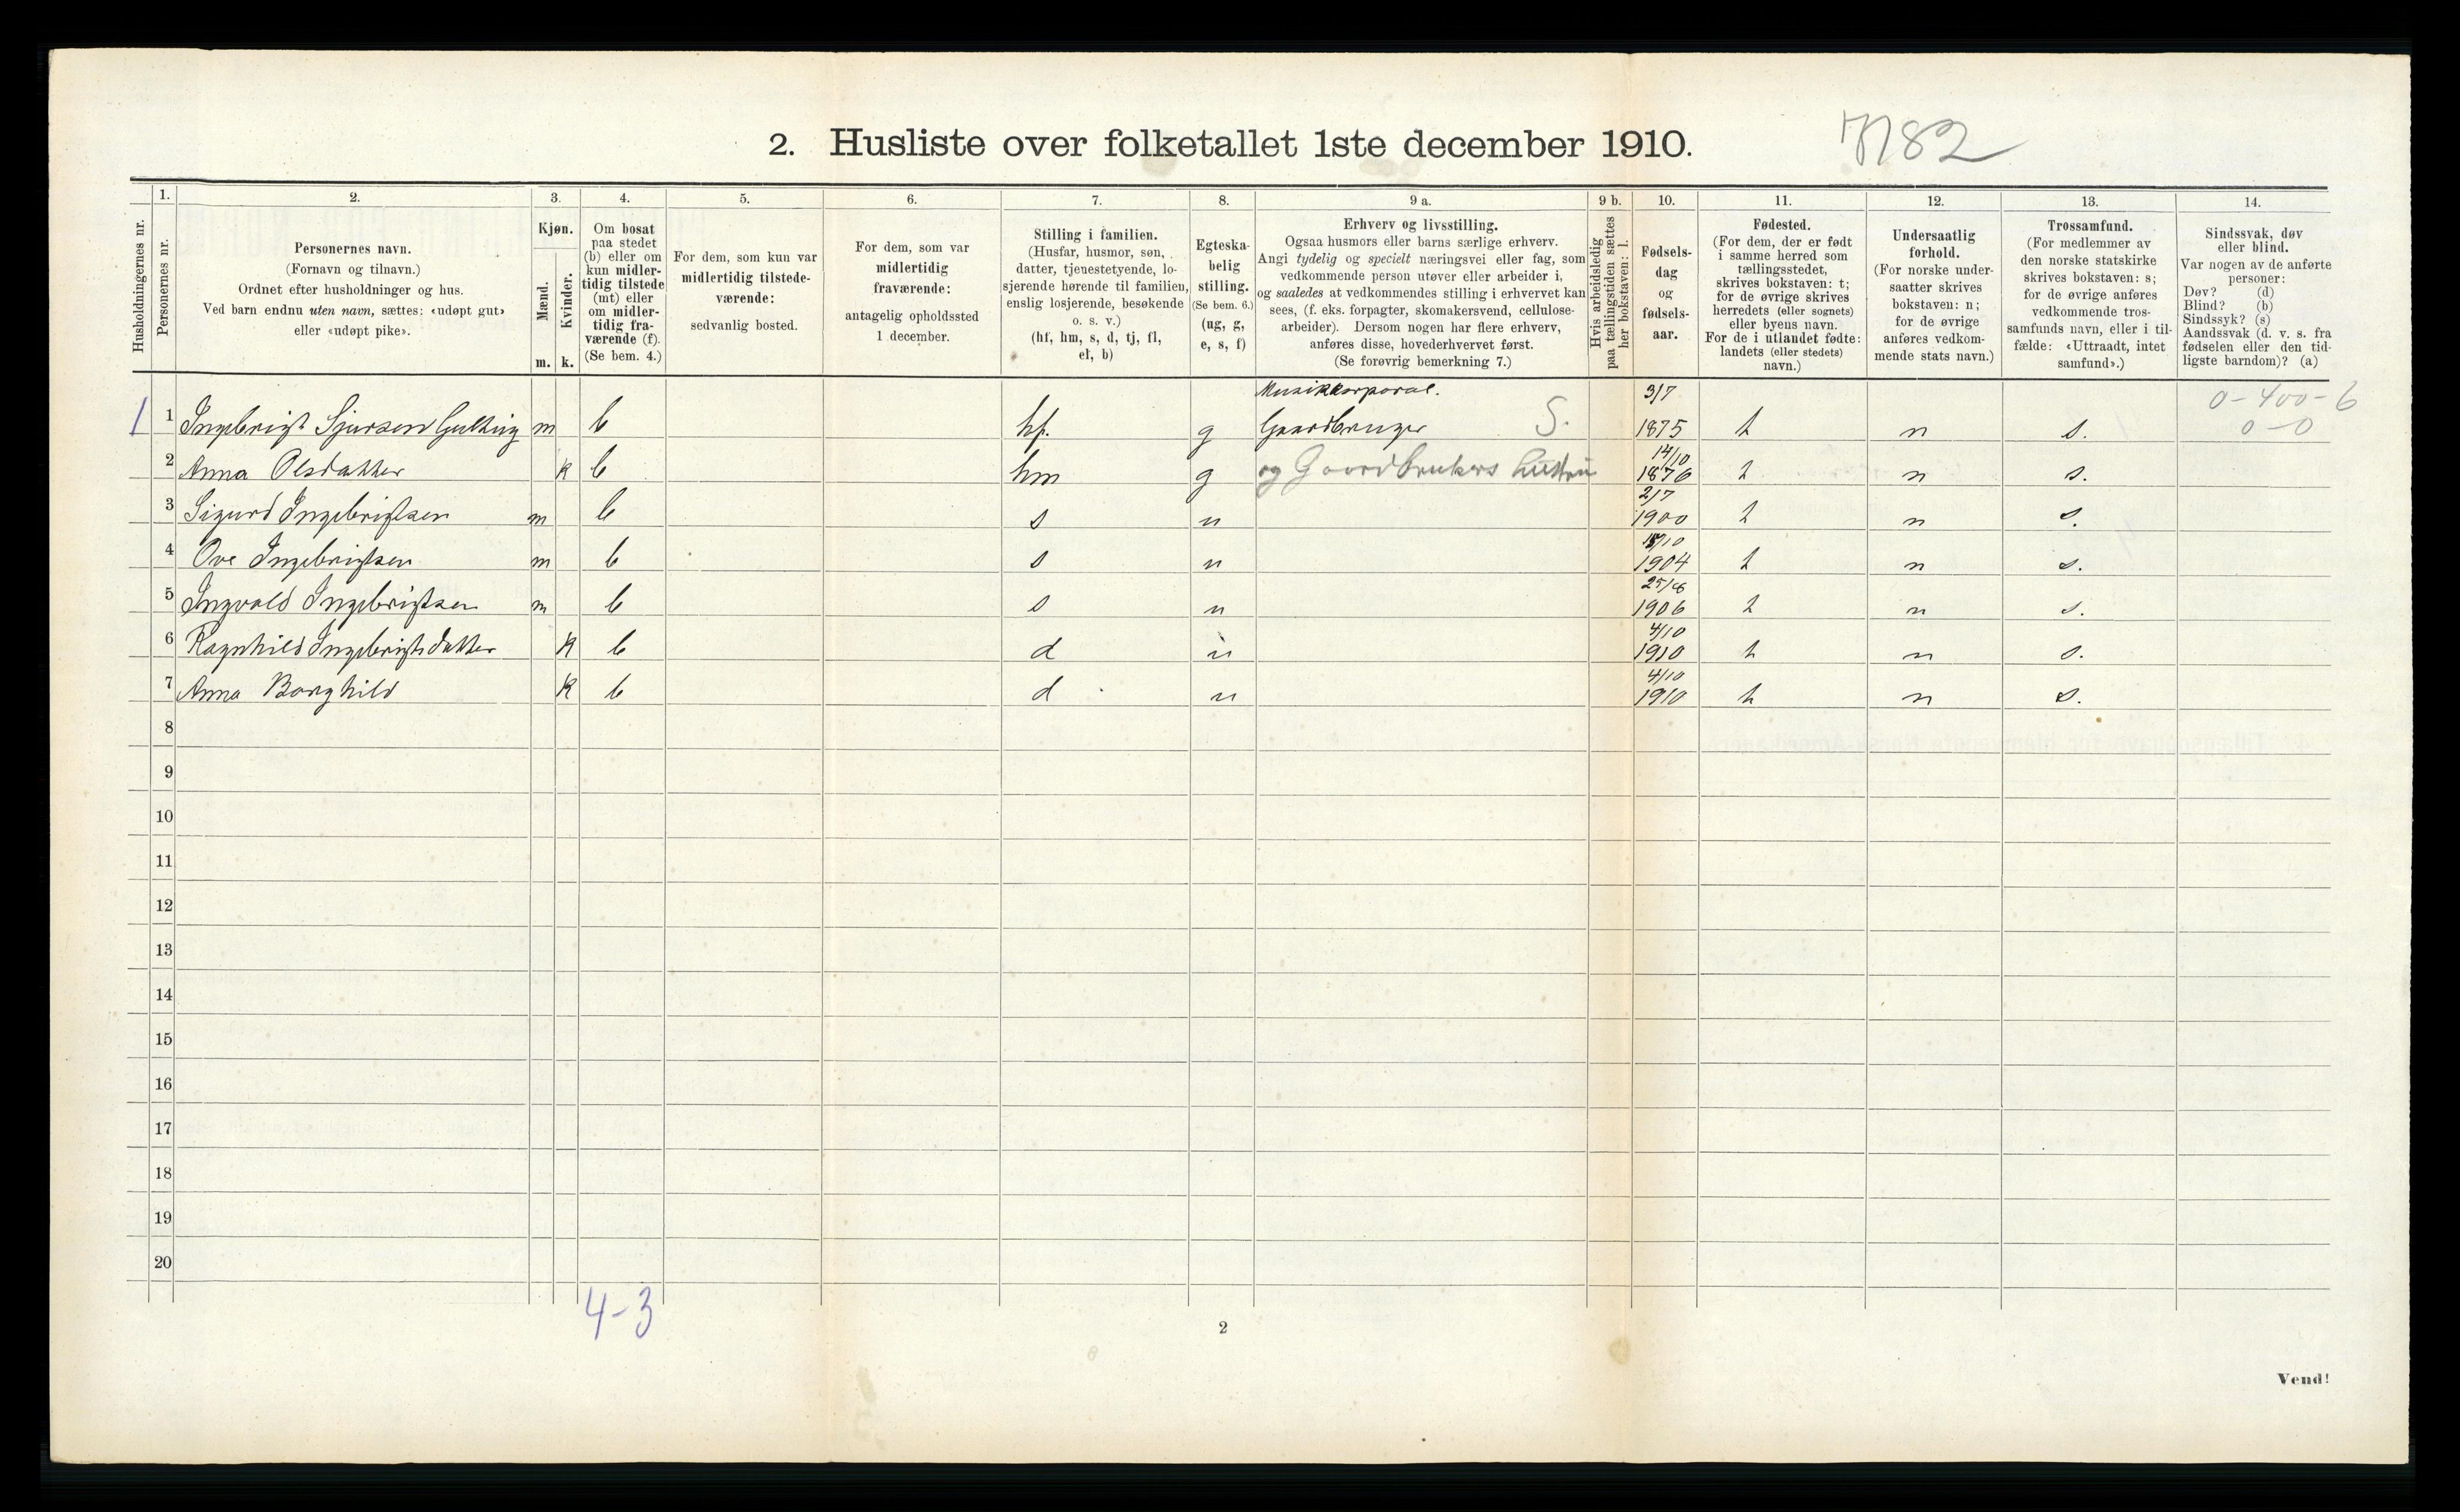 2. Husliste over folketallet 1ste december 1910.
7182
Husholdningernes nr.
1.
Personernes nr.
2.
Personernes navn.
(Fornavn og tilnavn.)
Ordnet efter husholdninger og hus.
Ved barn endnu uten navn, sættes: «udøpt gut»
eller «udøpt pike».
3.
Kjøn.
Mænd.
Kvinder.
m. k.
4.
Om bosat
paa stedet
(b) eller om
kun midler-
tidig tilstede
(mt) eller
om midler-
tidig fra-
værende (f).
(Se bem. 4.)
5.
For dem, som kun var
midlertidig tilstede-
værende:
sedvanlig bosted.
6.
For dem, som var
midlertidig
fraværende:
antagelig opholdssted
1 december.
7.
Stilling i familien.
(Husfar, husmor, søn,
datter, tjenestetyende, lo-
sjerende hørende til familien,
enslig losjerende, besøkende
o. s. v.)
(hf, hm, s, d, tj, fl,
el, b)
8.
Egteska-
belig
stilling.
(Se bem. 6.)
(ug, g,
e, s, f)
9 a.
Erhverv og livsstilling.
Ogsaa husmors eller barns særlige erhverv.
Angi tydelig og specielt næringsvei eller fag, som
vedkommende person utøver eller arbeider i,
og saaledes at vedkommendes stilling i erhvervet kan
sees, (f. eks. forpagter, skomakersvend, cellulose-
arbeider). Dersom nogen har flere erhverv,
anføres disse, hovederhvervet først.
(Se forøvrig bemerkning 7.)
9 b.
Hvis arbeidsledig
paa tællingstiden sættes
her bokstaven: l.
10.
Fødsels-
dag
og
fødsels-
aar.
11.
Fødested.
(For dem, der er født
i samme herred som
tællingsstedet,
skrives bokstaven: t;
for de øvrige skrives
herredets (eller sognets)
eller byens navn.
For de i utlandet fødte:
landets (eller stedets)
navn.)
12.
Undersaatlig
forhold.
(For norske under-
saatter skrives
bokstaven: n;
for de øvrige
anføres vedkom-
mende stats navn.)
13.
Trossamfund.
(For medlemmer av
den norske statskirke
skrives bokstaven: s;
for de øvrige anføres
vedkommende tros-
samfunds navn, eller i til-
fælde: «Uttraadt, intet
samfund».)
14.
Sindssvak, døv
eller blind.
Var nogen av de anførte
personer:
Døv? (d)
Blind? (b)
Sindssyk? (s)
Aandssvak (d. v. s. fra
fødselen eller den tid-
ligste barndom)? (a)
Musikkorporal. 3/7 0-400-6
1 1 Ingebrigt Sjursen m b hf. g Gaardbruger S. 1875 t n s. 0-0
14/10
2 Anna Olsdatter k b hm g og Gaardbrukers hustru 1876 t n s.
2/7
3 Sigurd Ingebrigtsen m b s u 1900 t n s.
/10
4 Ove Ingebrigtsen m b s u 1904 t n s.
5 Ingvald Ingebrigtsen m b s u 1906 t n s.
4/10
6 Ragnhild Ingebrigtsdatter k b d u 1910 t n s.
4/10
7 Anna Borghild k b d u 1910 t n s.
8
9
10
11
12
13
14
15
16
17
18
19
20
4-3
2
Vend!